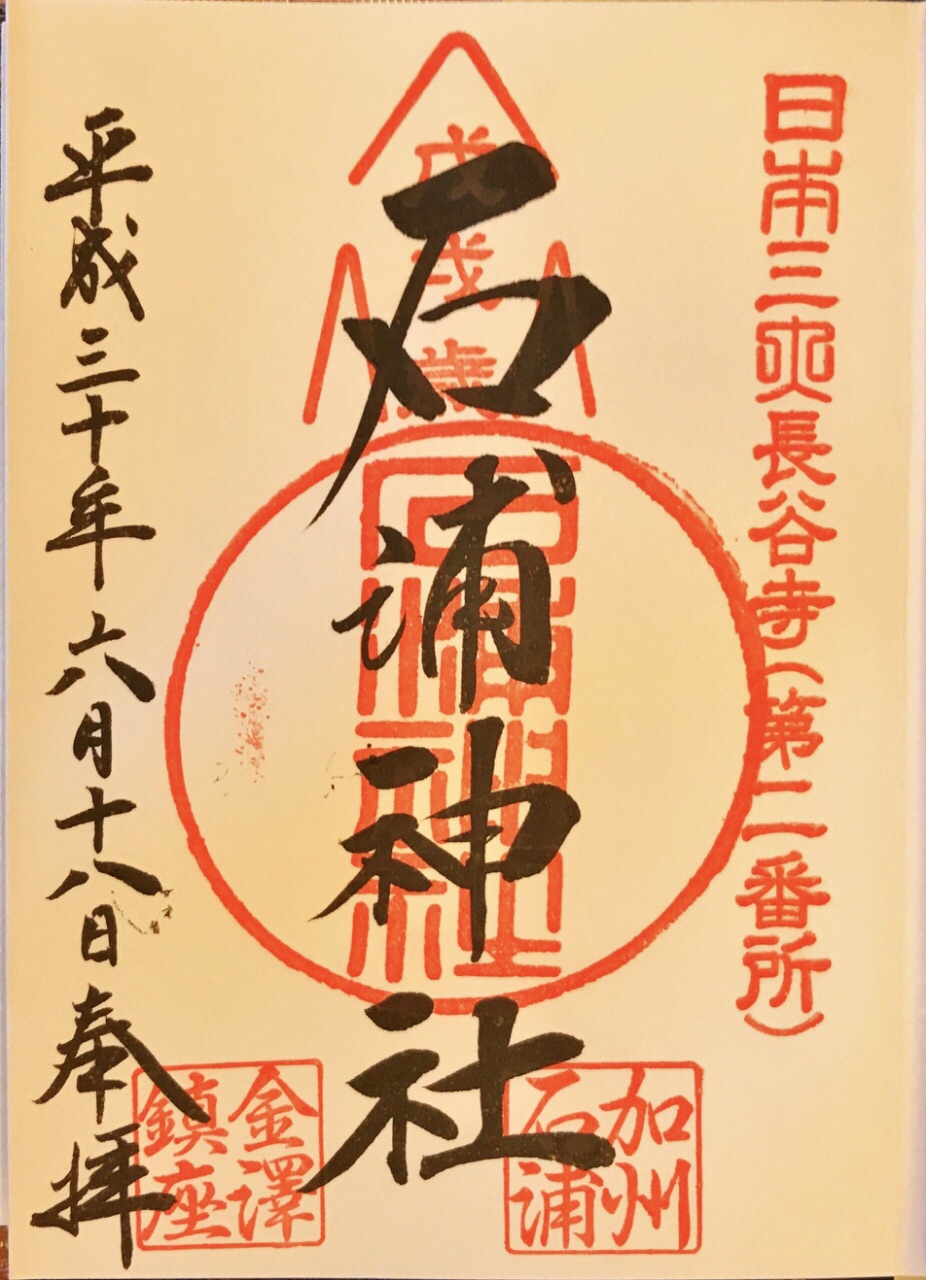 日本三大長谷寺(第二番所)
戊戌歳
石浦神社
石浦神社
加州
石浦
金澤
鎮座
平成三十年六月十八日奉拝